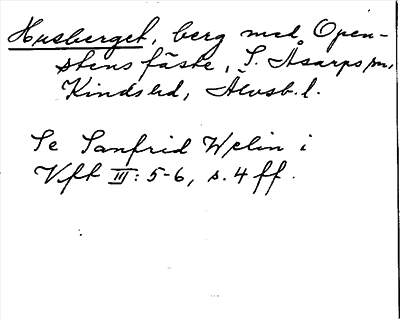 Husberget, berg med Open-
stens fäste, S. Åsarps sn,
Kinds hd, Älvsb. l.
Se Sanfrid Welin i
Vft III: 5-6, s. 4 ff.